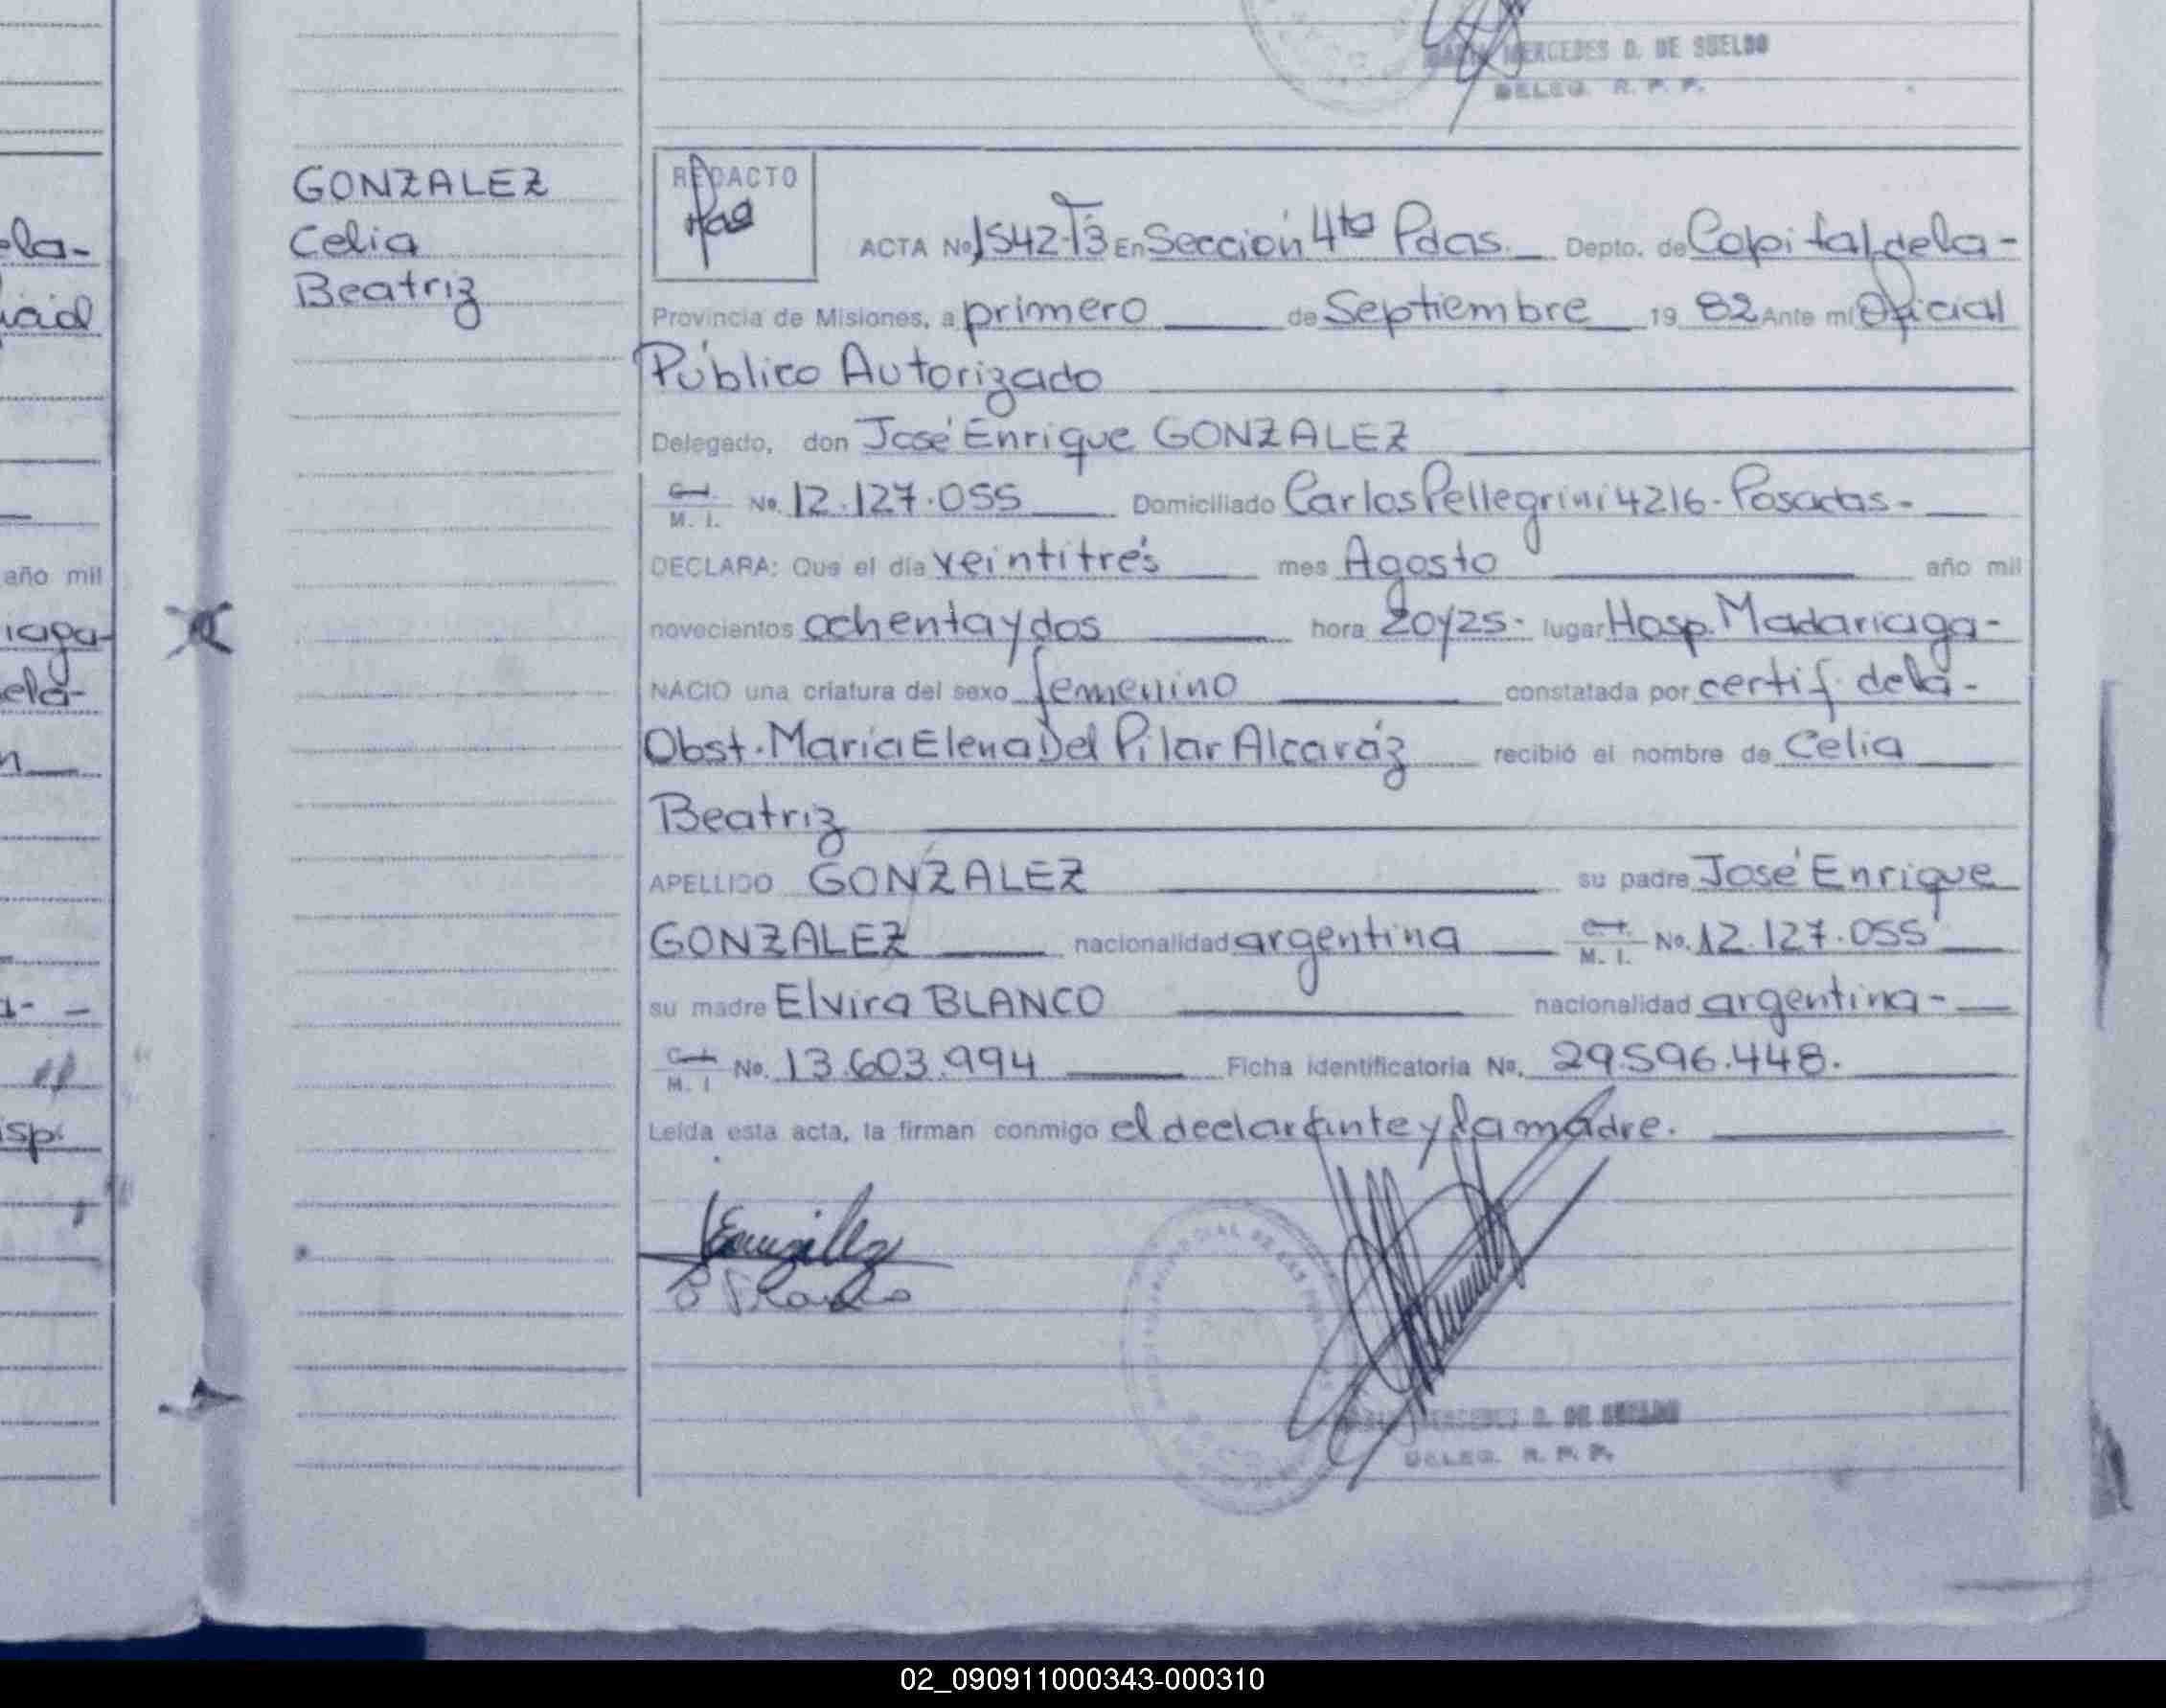 MARIA MERCEDES D. DE SUELDO
DELEG. R. P. P.
GONZALEZ
Celia
Beatriz
REDACTO
ACTA Nº 1542-T3 En Sección 4ta Pdas. Depto. de Capital de la-
Provincia de Misiones, a primero de Septiembre 19 82 Ante mí Oficial
Público Autorizado
Delegado, don José Enrique GONZALEZ
C.I. M. I. No. 12.127.055 Domiciliado Carlos Pellegrini 4216-Posadas-
DECLARA: Que el día veintitrés mes Agosto año mil
novecientos ochenta y dos hora 20y25- lugar Hosp. Madariaga-
NACIO una criatura del sexo femenino constatada por certif. de la-
Obst. María Elena Del Pilar Alcaráz recibió el nombre de Celia
Beatriz
APELLIDO GONZALEZ su padre José Enrique
GONZALEZ nacionalidad argentina C.I. M. I. No. 12.127.055
su madre Elvira BLANCO nacionalidad argentina-
C.I. M. I No. 13.603.994 Ficha identificatoria No. 29.596.448.
Leída esta acta, la firman conmigo el declarante y la madre.
MERCEDES D. DE SUELDO
DELEG. R. P. P.
ela-
icial
año mil
iaga-
ela-
n
a- -
isp.
02_090911000343-000310